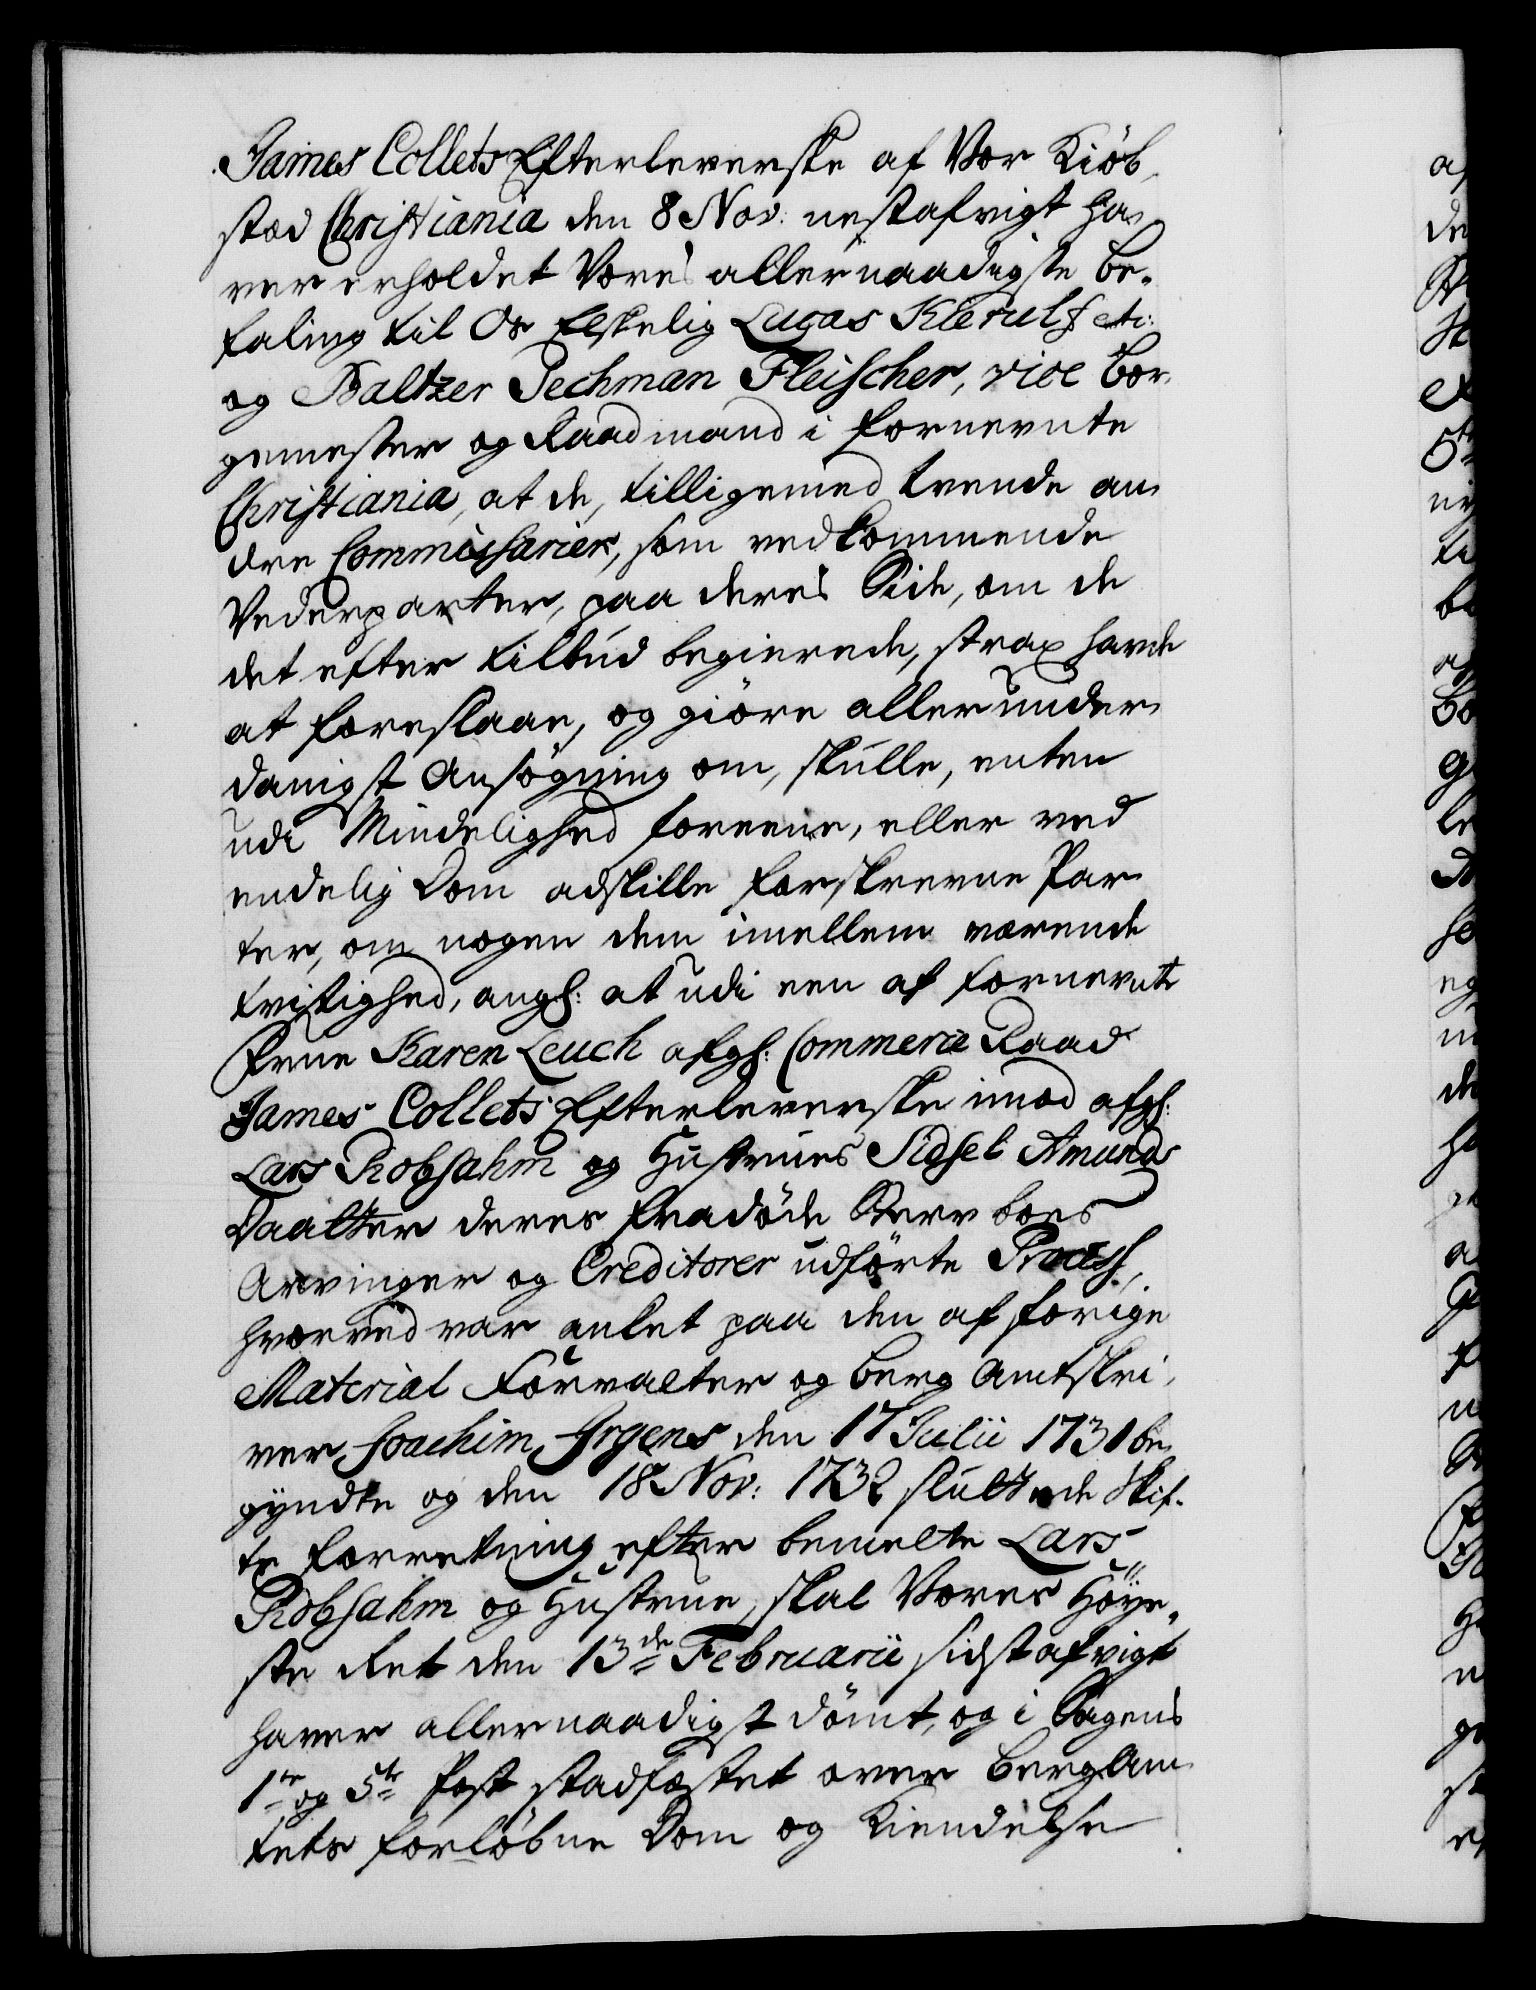 James Collets Efterleverske af Vor Kiöb,
stæd Christiania den 8 Nov: nestafvigt ha,
ver erholdet Vores allernaadigste be,
faling til Os Elskelig Lucas Kierulf etc:
og Baltzer Sechman Fleischer, vice Bor,
gemester og Raadmand i fornevnte
Christiania, at de, tilligemed tvende an,
dre Commissarier, som vedkommende
Vederparter, paa deres Side, om de
det efter tilbud begierede, strax havde
at foreslaae, og giöre allerunder,
danigst Ansögning om, skulle, enten
udi Mindelighed foreene, eller ved
endelig Dom adskille forskrevne Par
ter, om nogen dem imellem værende
tvistighed, angl: at udi een af fornevnte
Frue Karen Leuch afgl: Commerce Raad
James Collets Efterleverske imod afgl:
Lars Robsahm og Hustrues Sidsel Amunds
Daatter deres fradöde Sterv boes
Arvinger og Creditorer udförte Process,
hvorved var anket paa den af forige
Material Forvalter og Berg Amtskri,
ver Joachim Jrgens den 17 Julii 1731 be,
gyndte og den 18 Nov: 1732 sluttede Skif,
te forretning efter bemelte Lars
Robsahm og Hustrue, skal Vores Höye,
ste Ret den 13de Februarii sidstafvigt
haver allernaadigst dömt, og i Sagens
1te og 5te Post stadfæstet over bergAm
tets forlöbne Dom og Kiendelse